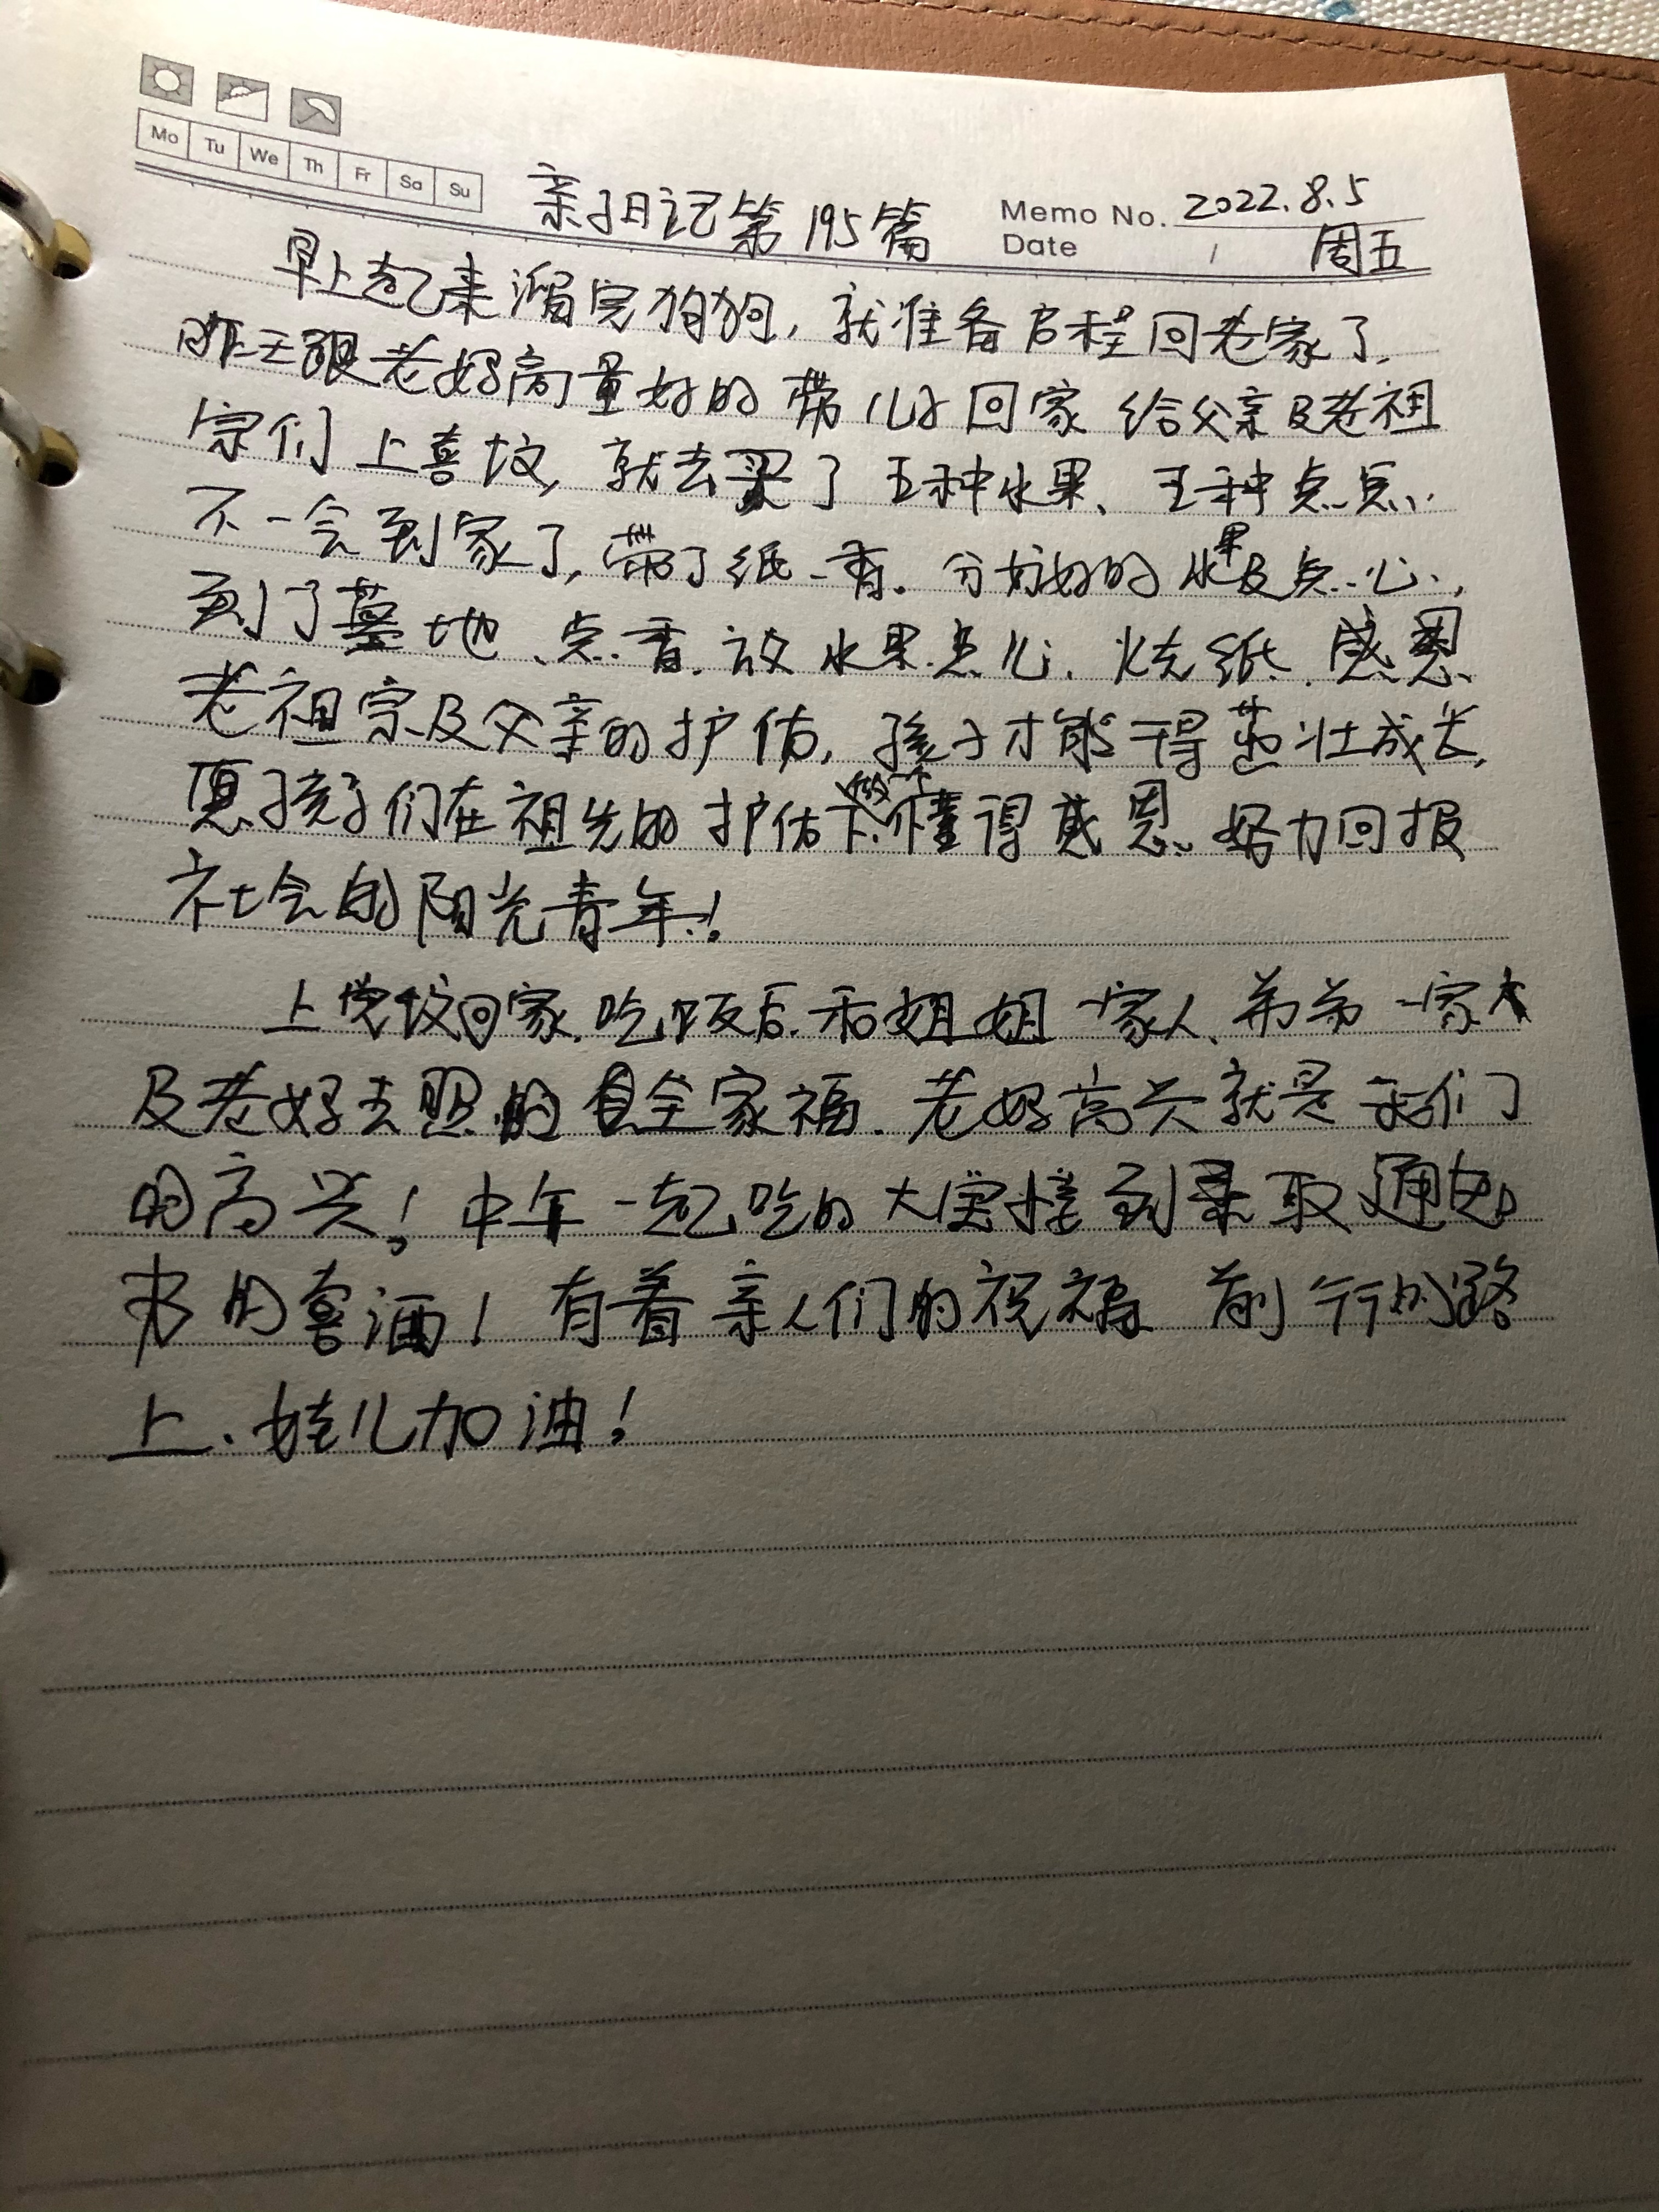 Mo Tu We Th Fr Sa Su
亲子日记第195篇
Memo No. 2022.8.5
Date / 周五
早上起来溜完狗狗,就准备启程回老家了.
昨天跟老妈商量好的带儿子回家给父亲及老祖
宗们上喜坟,就去买了五种水果、五种点点.
不一会到家了,带了纸、香.分好好的水果及点心,
到了墓地、点香.放水果点心.烧纸.感恩
老祖宗及父亲的护佑,孩子才能得茁壮成长,
愿孩子们在祖先的护佑下.做个懂得感恩、努力回报
社会的阳光青年!
上完坟回家.吃饭后.和姐姐一家人、弟弟一家人
及老妈去照的全家福.老妈高兴就是我们
的高兴!中午一起吃的大宝接到录取通知
书的喜酒!有着亲人们的祝福 前行的路
上.娃儿加油!